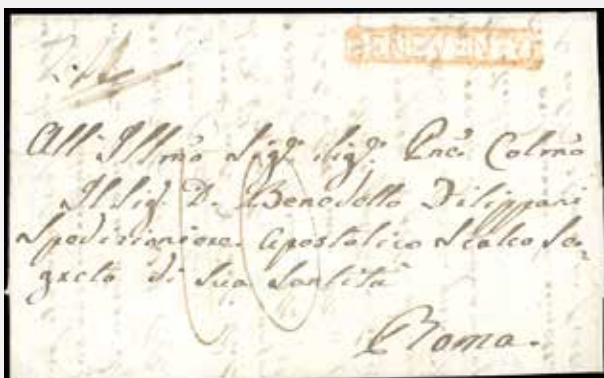 All' Illmo Sig.r Sig.r Pne Colmo
Il Sig. D. Benedetto Filippani
Spedizioniere Apostolico Scalco Se=
greto di Sua Santità
Roma.